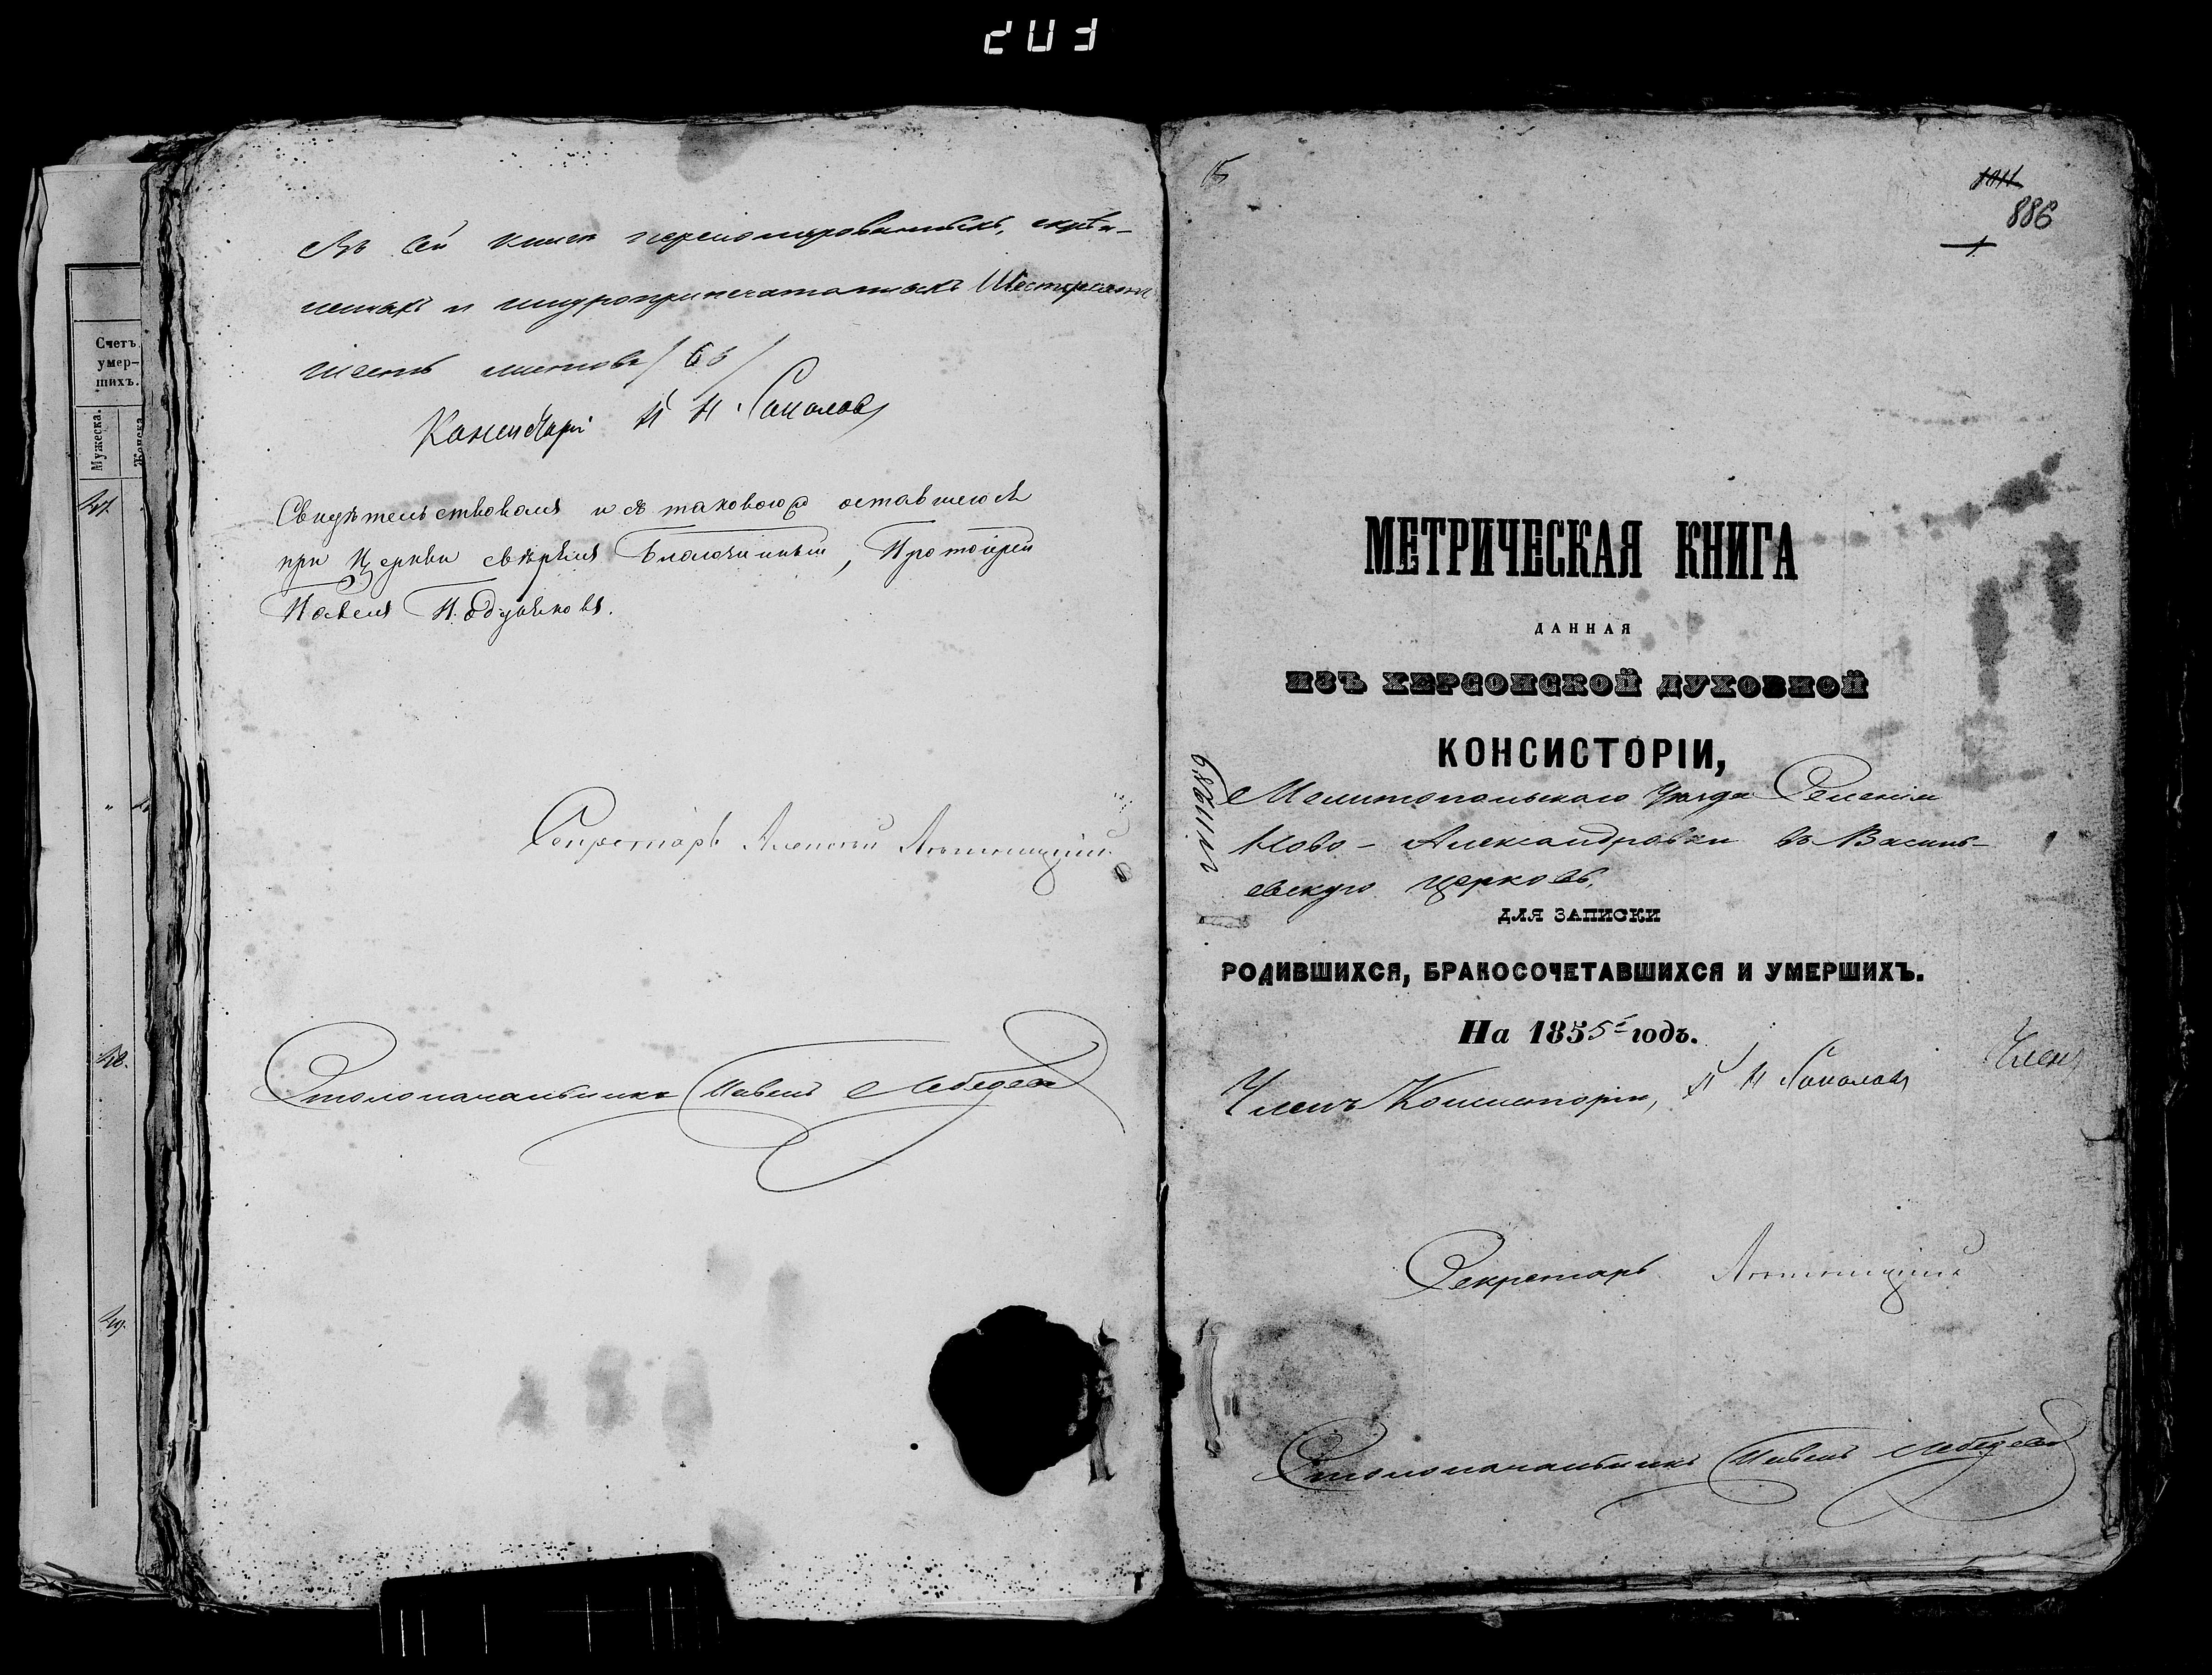 203
Счетъ
умер-
шихъ.
Мужеска.
Женска.
47.
48.
49.
Въ сей книгѣ перенумерованныхъ, скрѣп-
ленныхъ и шнуроприпечатанныхъ Шестьдесятъ
шесть листовъ /66/
Консисторіи Соколовъ
Свидѣтельствовалъ и съ таковою оставшеюся
при Церкви свѣрялъ Благочинный, Протоіерей
Павелъ
Секретарь Алексѣй
Столоначальникъ Павелъ Лебедевъ
15
886
1
МЕТРИЧЕСКАЯ КНИГА
ДАННАЯ
ИЗЪ ХЕРСОНСКОЙ ДУХОВНОЙ
КОНСИСТОРІИ,
Мелитопольскаго Уѣзда Селенія
Ново-Александровки въ Василь-
евскую церковь.
ДЛЯ ЗАПИСКИ
РОДИВШИХСЯ, БРАКОСОЧЕТАВШИХСЯ И УМЕРШИХЪ.
На 1855й годъ.
Членъ Консисторіи, Соколовъ
Членъ
Секретарь
Столоначальникъ Павелъ Лебедевъ